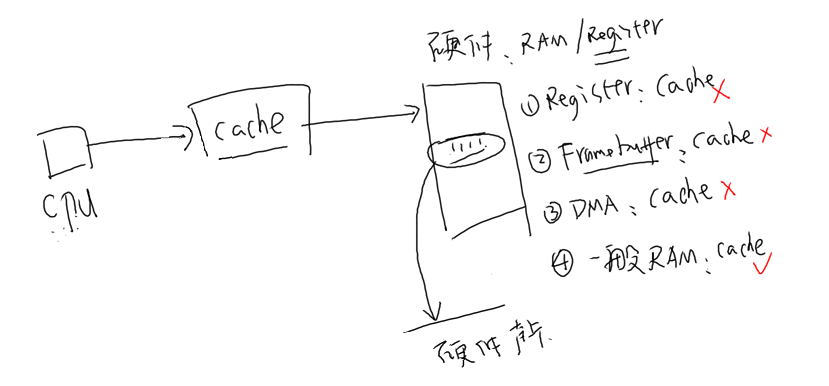 硬件：RAM/Register
cache
CPU
① Register：cache ×
② Framebuffer：cache ×
③ DMA：cache ×
④ 一般RAM：cache ✓
硬件